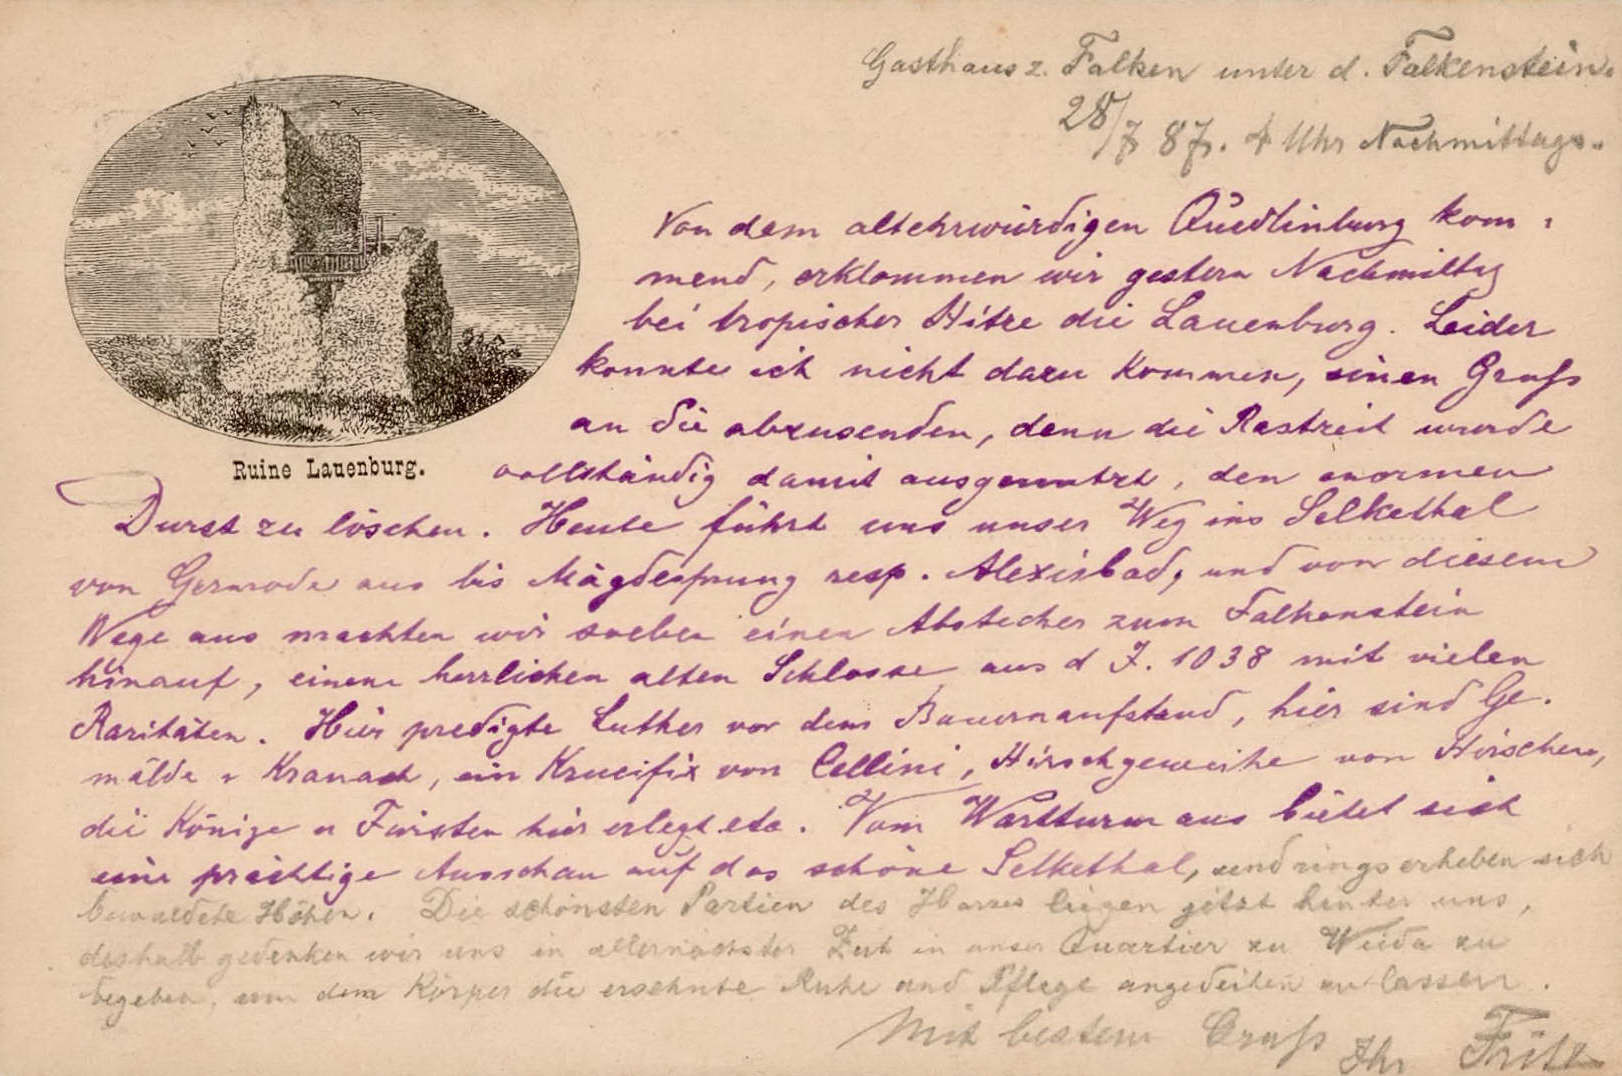 Gasthaus z. Falken unter d. Falkenstein.
28/7 87. 4 Uhr Nachmittags.
Von dem altehrwürdigen Quedlinburg kom-
mend, erklommen wir gestern Nachmittag
bei tropischer Hitze die Lauenburg. Leider
konnte ich nicht dazu kommen, einen Gruß
an Sie abzusenden, denn die Rastzeit wurde
vollständig damit ausgenutzt, den enormen
Ruine Lauenburg.
Durst zu löschen. Heute führt uns unser Weg ins Selkethal
von Gernrode aus bis Mägdesprung resp. Alexisbad, und von diesem
Wege aus machten wir soeben einen Abstecher zum Falkenstein
hinauf, einem herrlichen alten Schlosse aus d J. 1038 mit vielen
Raritäten. Hier predigte Luther vor dem Bauernaufstand, hier sind Ge-
mälde v Kranach, ein Krucifix von Cellini, Hirschgeweihe von Hirschen,
die Könige u Fürsten hier erlegt etc. Vom Wartturm aus bietet sich
eine prächtige Ausschau auf das schöne Selkethal, und rings erheben sich
bewaldete Höhen. Die schönsten Partien des Harzes liegen jetzt hinter uns,
deshalb gedenken wir uns in allernächster Zeit in unser Quartier zu Weida zu
begeben, um dem Körper die ersehnte Ruhe und Pflege angedeihen zu lassen.
Mit bestem Gruß Ihr Fritz